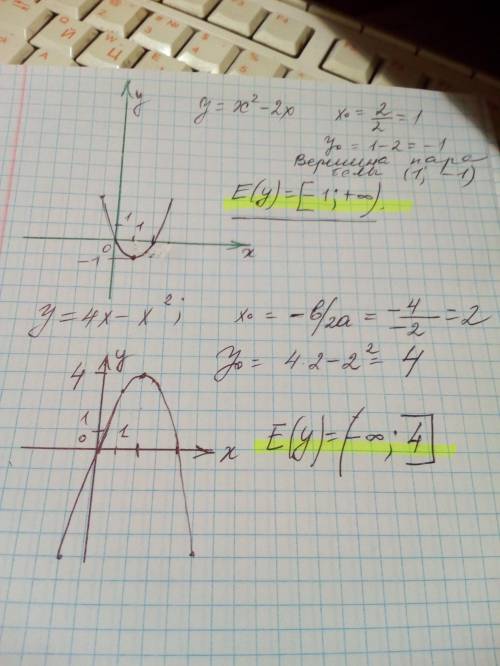 y
y = x² - 2x
x₀ = 2/2 = 1
y₀ = 1 - 2 = -1
Вершина пара
болы (1; -1)
E(y) = [-1; +∞).
1 1
0
x
-1
y = 4x - x²;
x₀ = -b/2a = -4/-2 = 2
y₀ = 4·2 - 2² = 4
y
4
1
0 1
x
E(y) = (-∞; 4]